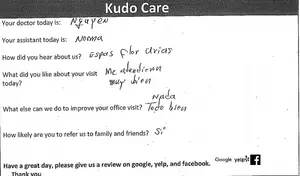 Kudo Care
Your doctor today is: Nguyen
Your assistant today is: Norma
How did you hear about us? Espas flor Urias
What did you like about your visit today? Me atendieron
muy bien
Nada
What else can we do to improve your office visit? Todo bien
How likely are you to refer us to family and friends? Si
Have a great day, please give us a review on google, yelp, and facebook. Google yelp f
Thank you